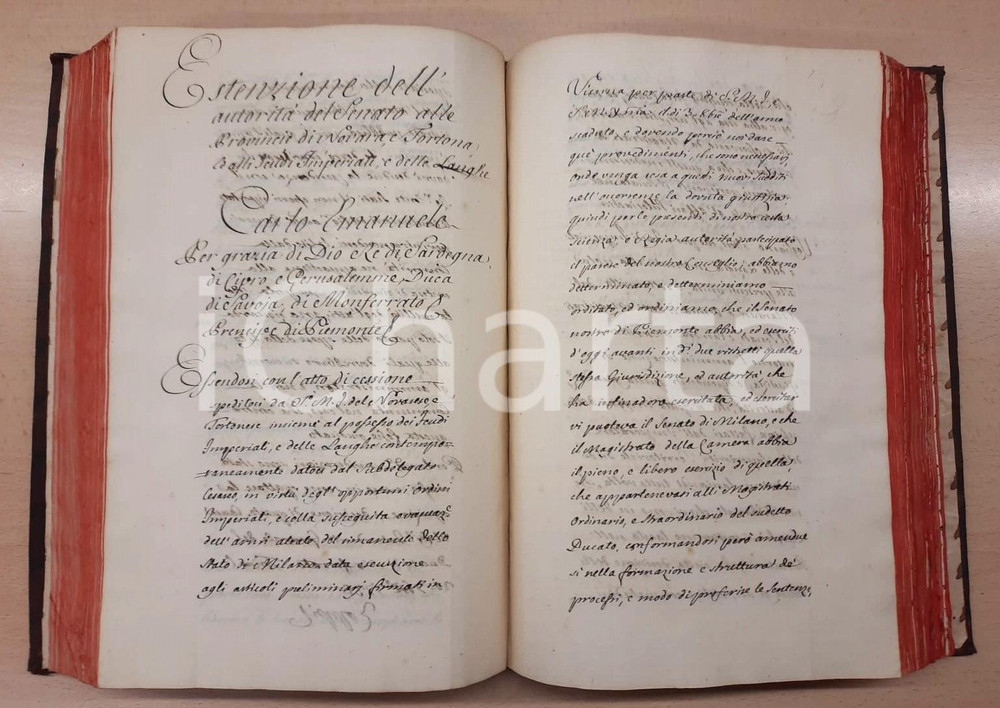 Estenzione dell'
autorità del Senato alle
Provincie di Novara, e Tortona,
Feudi Imperiali, e delle Langhe
Carlo Emanuele
Per grazia di Dio e Re di Sardegna,
di Cipro, e Gerusalemme, Duca
di Savoja, di Monferrato &
Prencipe di Piemonte &
Essendosi con l'atto di cessione
speditosi da S. M. J. del Novarese, e
Tortonese insieme al possesso dei Feudi
Imperiali, e delle Langhe contempo-
raneamente datosi dal Subdelegato
Cesareo, in virtù degl'opportuni ordini
Imperiali, e colla susseguita evacuaz.e
dell'armi aleate del rimanente dello
Stato di Milano data esecuzione
agli articoli preliminari firmati in
Vienna per parte di S. M. J.
dell'anno
scaduto, e dovendo perciò noi dare
que' provedimenti, che sono necessarj
onde venga resa a quei nuovi sudditi
nell'occorrenze la dovuta giustizia
quindi per le presenti, di nostra certa
scienza, e Regia autorità, participato
il parere del nostro Conseglio, abbiamo
determinato, e determiniamo
ordinato, ed ordiniamo, che il Senato
nostro di Piemonte abbia, ed eserciti
d'oggi avanti in d.i due ristretti quella
stessa Giurisdizione, ed autorità che
ha infin'adora esercitata, ed esercitar
vi puoteva il Senato di Milano, e che
il Magistrato della Camera abbia
il pieno, e libero esercizio di quella
che appartenevasi alli Magistrati
Ordinario, e Straordinario del sudetto
Ducato, conformandosi però amendue
sì nella formazione e struttura de'
processi, e modo di proferire le sentenze,
iCharta